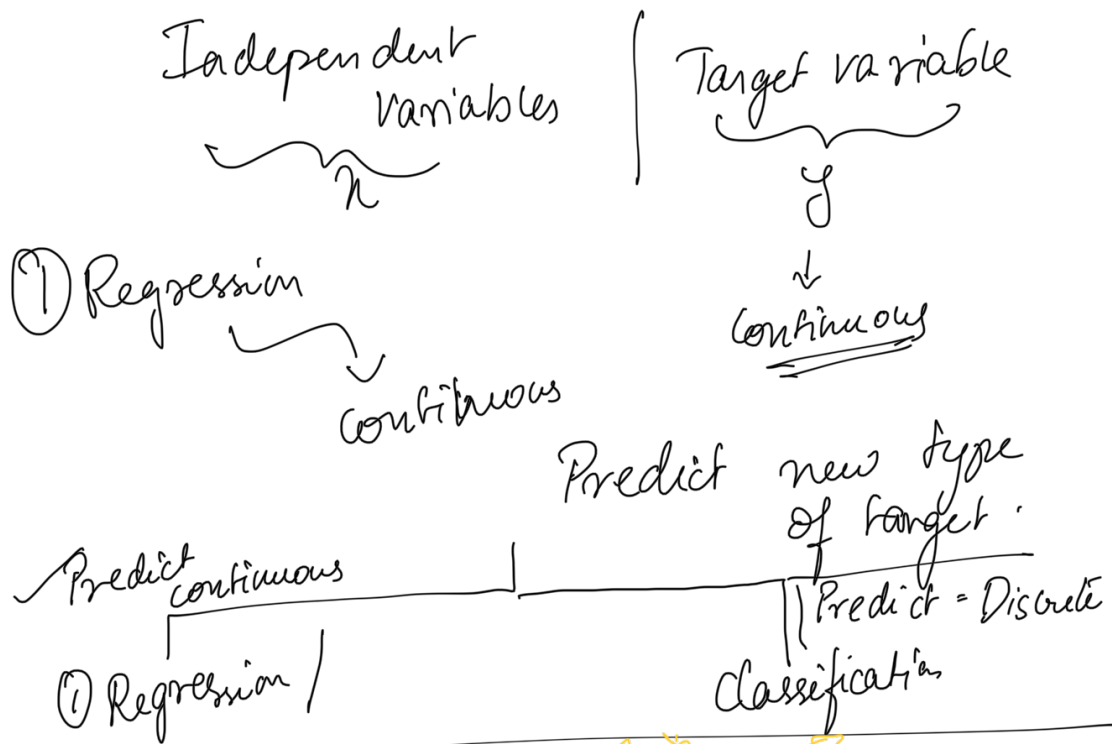 Independent
variables
x
Target variable
y
continuous
① Regression
continuous
Predict new type
of target.
Predict
continuous
Predict = Discrete
① Regression
Classification